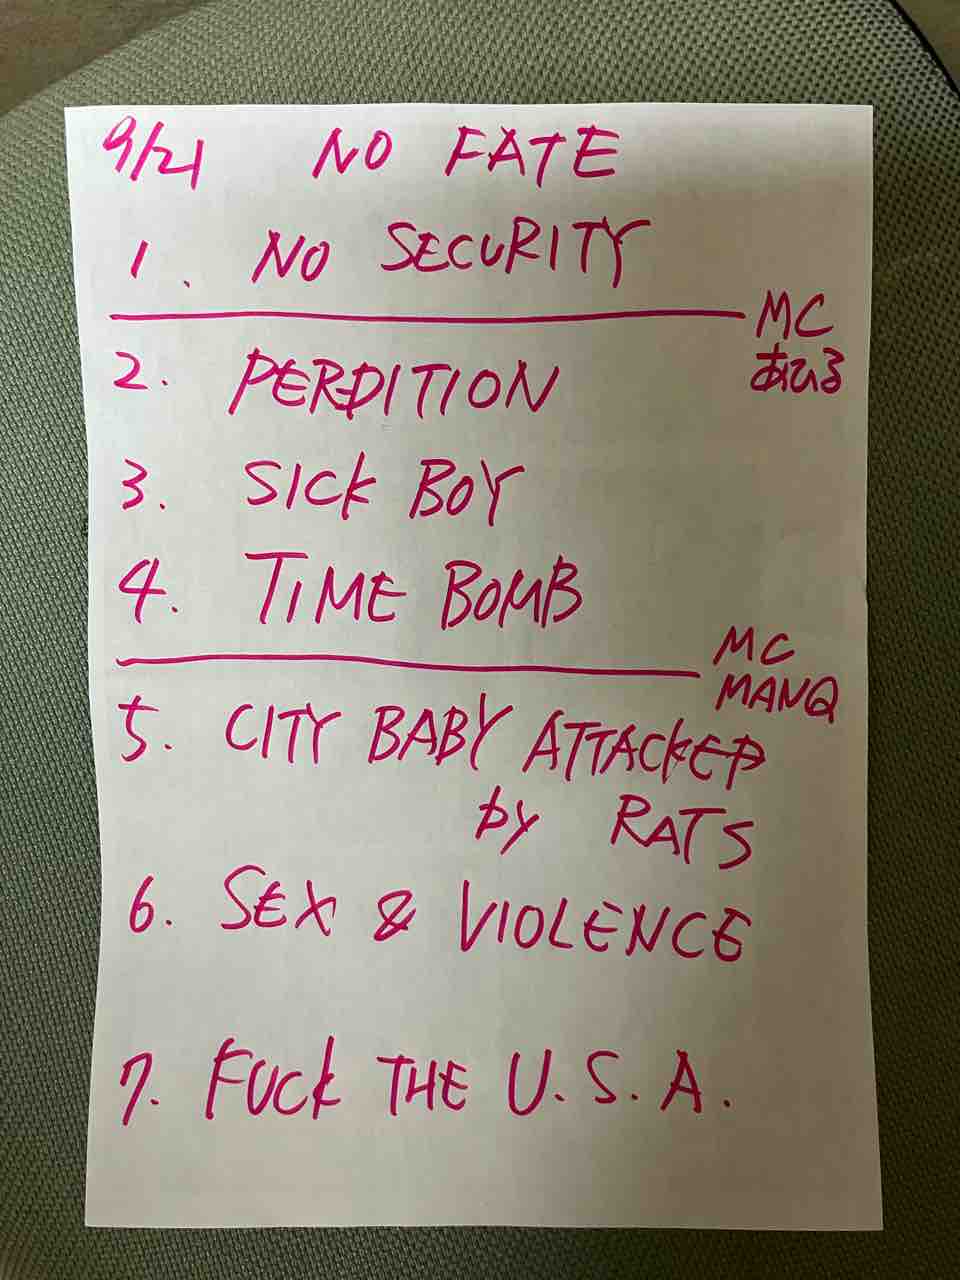 9/21 NO FATE
1. NO SECURITY
MC
あひる
2. PERDITION
3. SICK BOY
4. TIME BOMB
MC
MANQ
5. CITY BABY ATTACKED
by RATS
6. SEX & VIOLENCE
7. FUCK THE U.S.A.